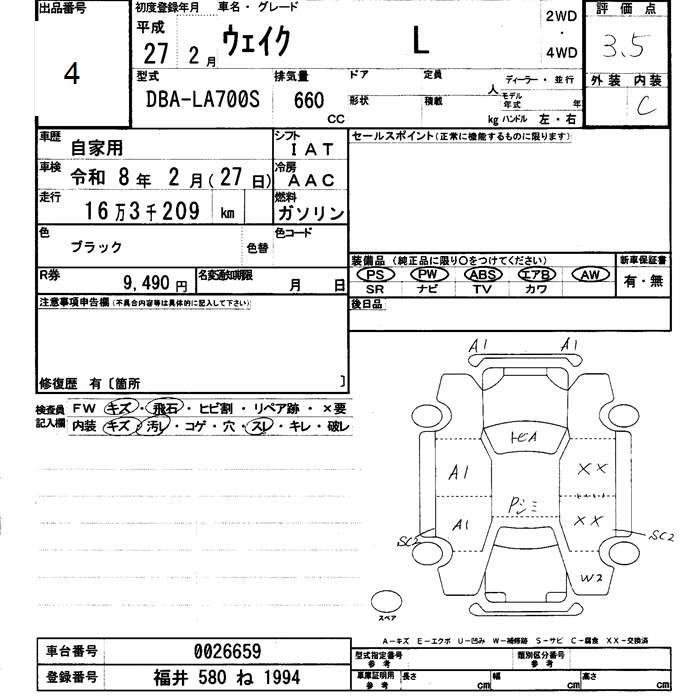 出品番号 初度登録年月 車名・グレード 評価点
4 平成 27 2月 ウェイク L 2WD・4WD 3.5
型式 排気量 ドア 定員 人 ディーラー・並行 外装 内装
DBA-LA700S 660 CC 形状 積載 kg モデル年式 年 ハンドル 左・右 C
車歴 自家用 シフト IAT セールスポイント(正常に機能するものに限ります)
車検 令和 8年 2月(27日) 冷房 AAC
走行 16万3千209 km 燃料 ガソリン
色 ブラック 色替 色コード
装備品 (純正品に限り〇をつけてください) 新車保証書
R券 9,490円 名変通知期限 月 日 PS PW ABS エアB AW 有・無
SR ナビ TV カワ
注意事項申告欄(不具合内容等は具体的に記入して下さい) 後日品
修復歴 有〔箇所 〕
検査員記入欄 FW キズ・飛石・ヒビ割・リペア跡・×要
内装 キズ・汚レ・コゲ・穴・スレ・キレ・破レ
A1 A1
トビA
A1 XX
Pシミ
A1 XX
SC2 SC2
W2
スペア
A-キズ E-エクボ U-凹み W-補修跡 S-サビ C-腐食 XX-交換済
車台番号 0026659 型式指定番号 参考 類別区分番号 参考
登録番号 福井 580 ね 1994 車庫証明用 参考 長さ cm 幅 cm 高さ cm